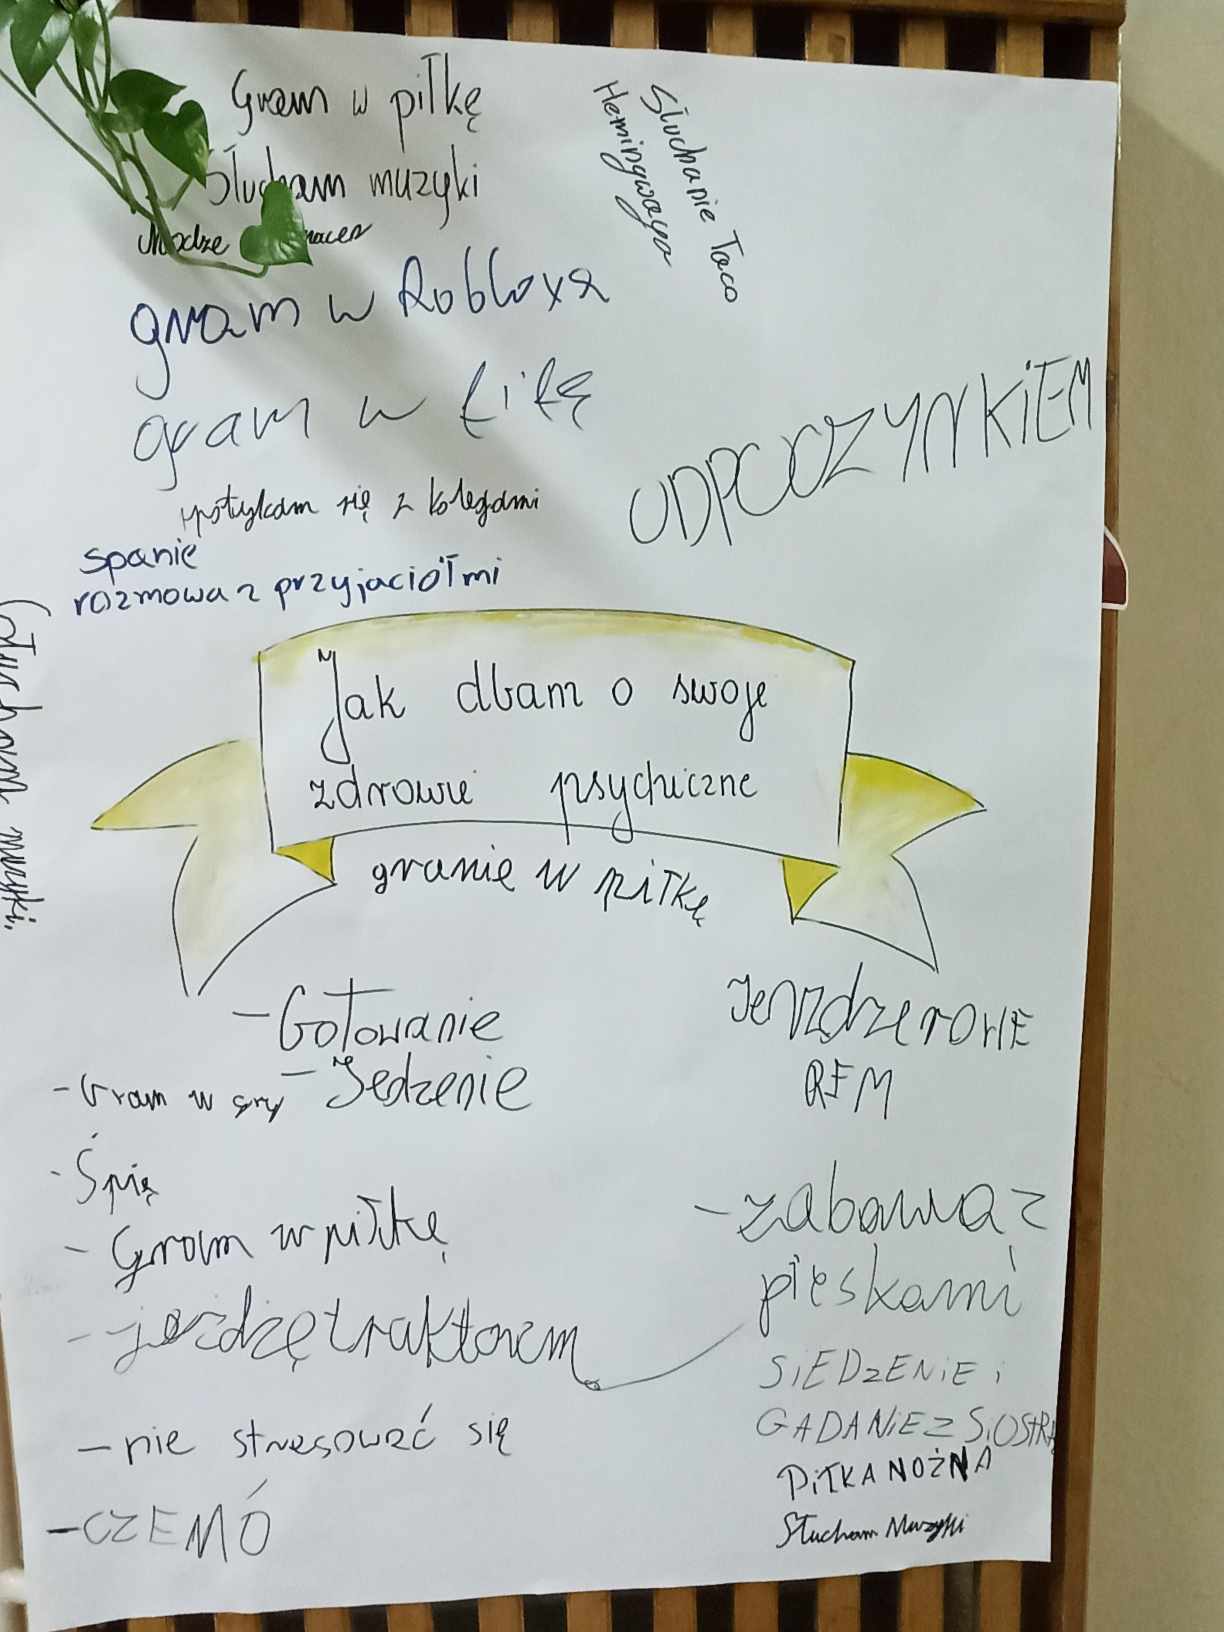 Gram w piłkę
Słucham muzyki
Słuchanie Taco
Hemingwaya
gram w Robloxa
gram w fifę
ODPOCZYNKIEM
spotykam się z kolegami
spanie
rozmowa z przyjaciółmi
Słucham muzyki.
Jak dbam o swoje
zdrowie psychiczne
granie w piłkę
- Gotowanie
- Jedzenie
REM
- Gram w gry
- Śpię
- Gram w piłkę
- jeżdżę traktorem
- nie stresować się
- CZEMÓ
- zabawa z
pieskami
SIEDZENIE i
GADANIE Z SIOSTRĄ
PIŁKA NOŻNA
Słucham Muzyki